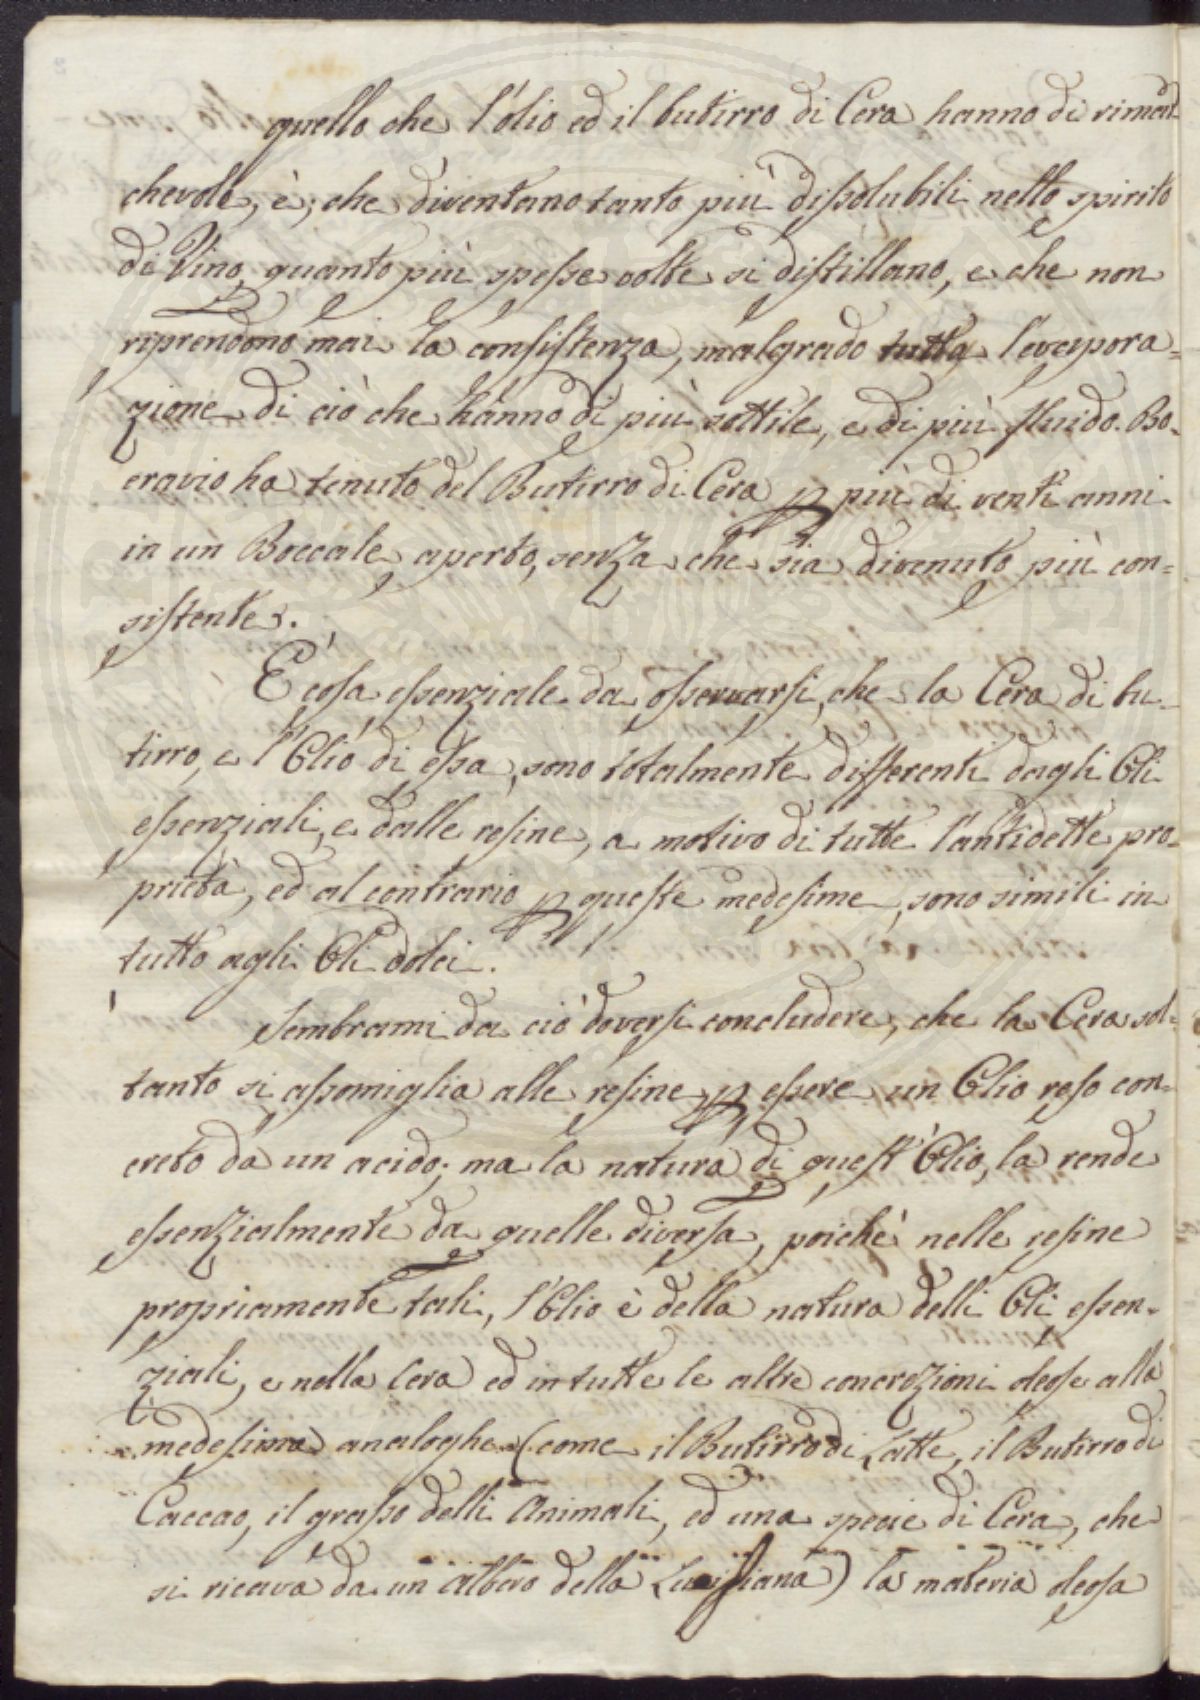 quello che l'olio ed il butirro di Cera hanno di rimar
chevole, è, che diventano tanto più dissolubili nello spirito
di Vino, quanto più spesse volte si distillano, e che non
riprendono mai la consistenza, malgrado tutta l'evapora=
zione di ciò che hanno di più sottile, e di più fluido. Bo=
eravio ha tenuto del Butirro di Cera p più di venti anni
in un Boccale aperto, senza che sia divenuto più con=
sistente.
È cosa essenziale da osservarsi, che la Cera di bu=
tirro, e l'Olio di essa, sono totalmente differenti dagli Oli
essenziali, e dalle resine, a motivo di tutte l'antidette pro=
prietà, ed al contrario p queste medesime, sono simili in
tutto agli Oli dolci.
Sembrami da ciò doversi concludere, che la Cera sol=
tanto si assomiglia alle resine p essere un Olio reso con=
creto da un acido; ma la natura di quest'Olio, la rende
essenzialmente da quelle diversa, poichè nelle resine
propriamente tali, l'Olio è della natura delli Oli essen=
ziali, e nella Cera ed in tutte le altre concrezioni oleose alla
medesima analoghe (come il Butirro di Latte, il Butirro di
Caccao, il grasso delli Animali, ed una specie di Cera, che
si ricava da un albero della Luisiana) la materia oleosa